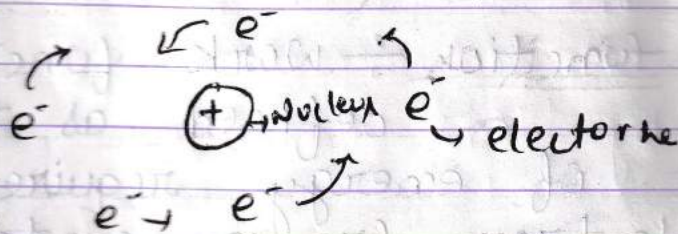 e⁻
e⁻ + → Nucleux e⁻
→ electorne
e⁻ → e⁻